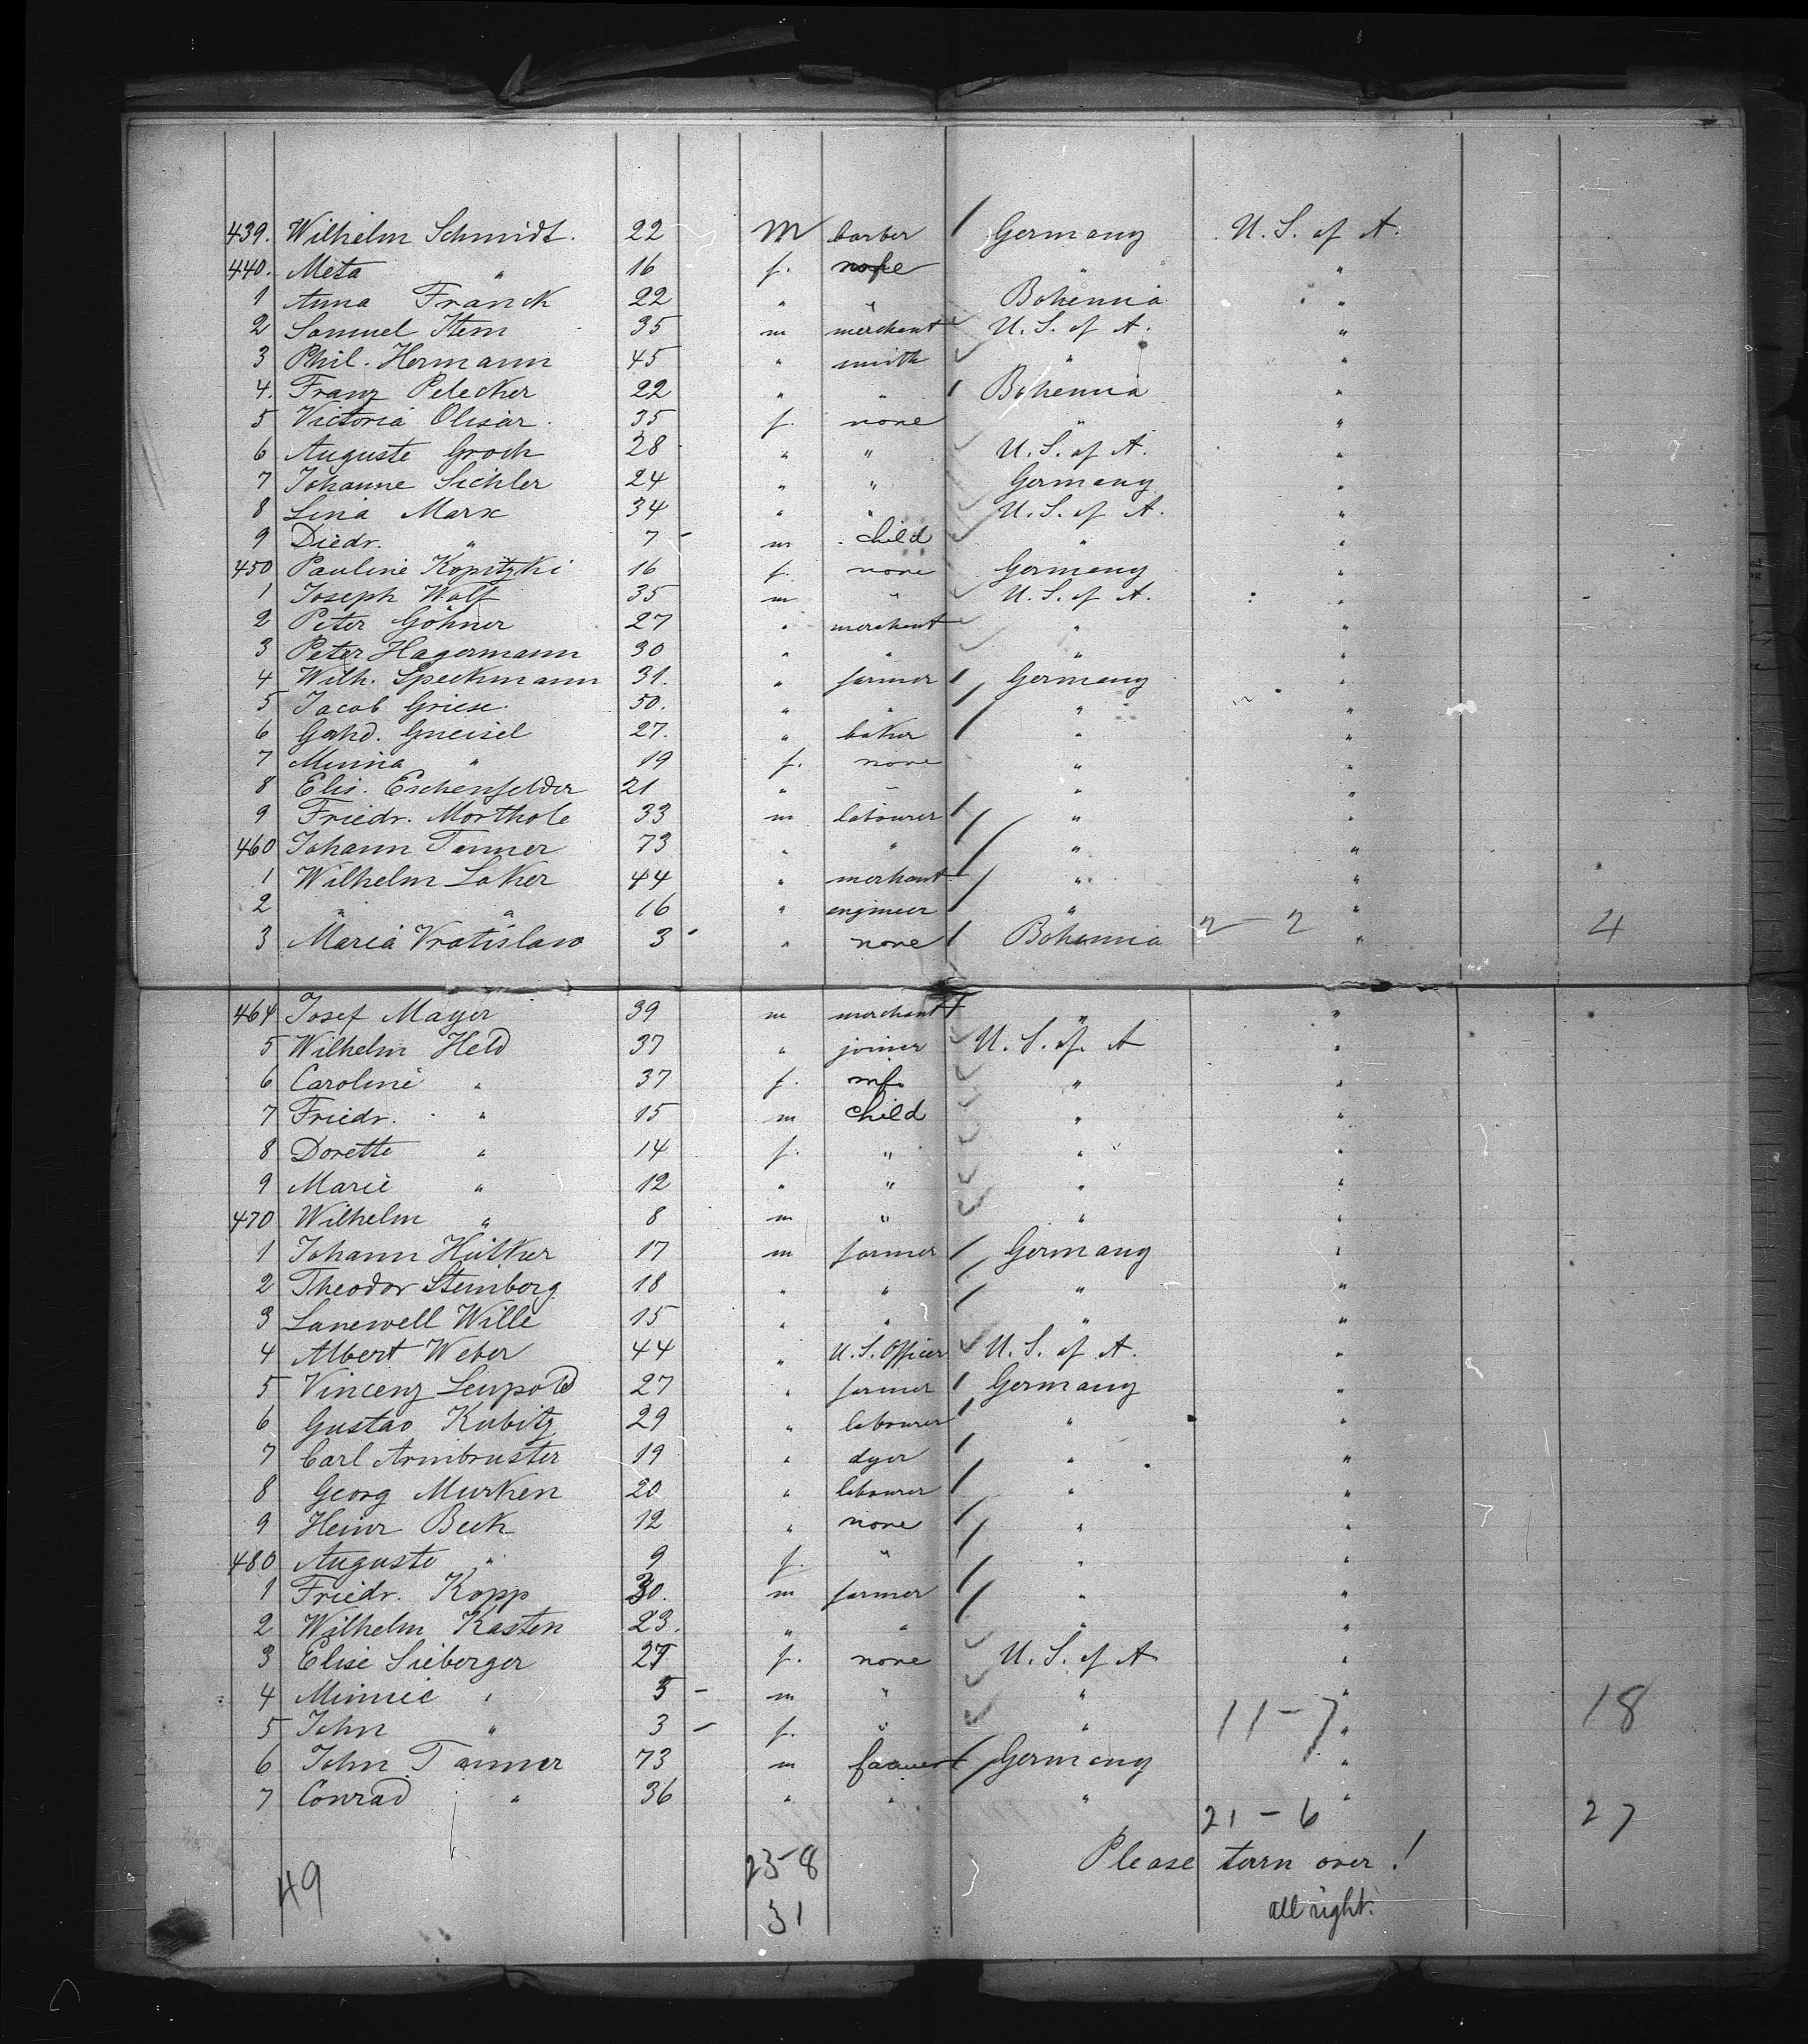 439. Wilhelm Schmidt. 22 m barber / Germany U. S. of A.
440. Meta " 16 f. none " "
1 Anna Franck 22 " " Bohemia "
2 Samuel Stern 35 m merchant U. S. of A. "
3 Phil. Hermann 45 " smith " "
4. Franz Pelecker 22 " " / Bohemia "
5 Victoria Olisar. 35 f. none " "
6 Auguste Groch 28 " " U. S. of A. "
7 Johanne Sichler 24 " " Germany "
8 Lina Marx 34 " " U. S. of A. "
9 Diedr. " 7 - m child " "
450 Pauline Kopitzki 16 f. none Germany "
1 Joseph Wolf 35 m " U. S. of A. "
2 Peter Göhner 27 " merchant " "
3 Peter Hagermann 30 " " " "
4 Wilh. Speckmann 31. " farmer / Germany "
5 Jacob Griese. 50. " " / " "
6 Gahd. Gneisel 27. " baker / " "
7 Minna " 19 f. none " "
8 Elis. Eschenfelder 21 " " " "
9 Friedr. Morthole 33 m labourer / " "
460 Johann Tanner 73 " " / " "
1 Wilhelm Loker 44 " merchant / " "
2 " " 16 " engineer / " "
3 Maria Vratislaw 3 " none / Bohemia 2 - 2 " 4
464 Josef Mayer 39 m merchant " "
5 Wilhelm Held 37 " joiner U. S. of A "
6 Caroline " 37 f. wf. " "
7 Friedr. " 15 m child " "
8 Dorette " 14 f. " " "
9 Marie " 12 " " " "
470 Wilhelm " 8 m " " "
1 Johann Hülker 17 m farmer / Germany "
2 Theodor Steinberg 18 " " / " "
3 Lanewell Wille 15 " " " "
4 Albert Weber 44 " U. S. Officer U. S. of A. "
5 Vincenz Leupold 27 " farmer / Germany "
6 Gustav Kubitz 29 " labourer / " "
7 Carl Armbruster 19 " dyer / " "
8 Georg Murken 20 " labourer / " "
9 Heinr Beck 12 " none / " "
480 Auguste " 9 f. " / " "
1 Friedr. Kopp 30. m farmer / " "
2 Wilhelm Kasten 23. " " " "
3 Elise Sieberger 27 f. none U. S. of A "
4 Minnie " 5 - m " " "
5 John " 3 - f. " " 11 - 7 " 18
6 John Tanner 73 m farmer / Germany "
7 Conrad " 36 " " " "
21 - 6 27
49 23-8 Please turn over!
31 all right.